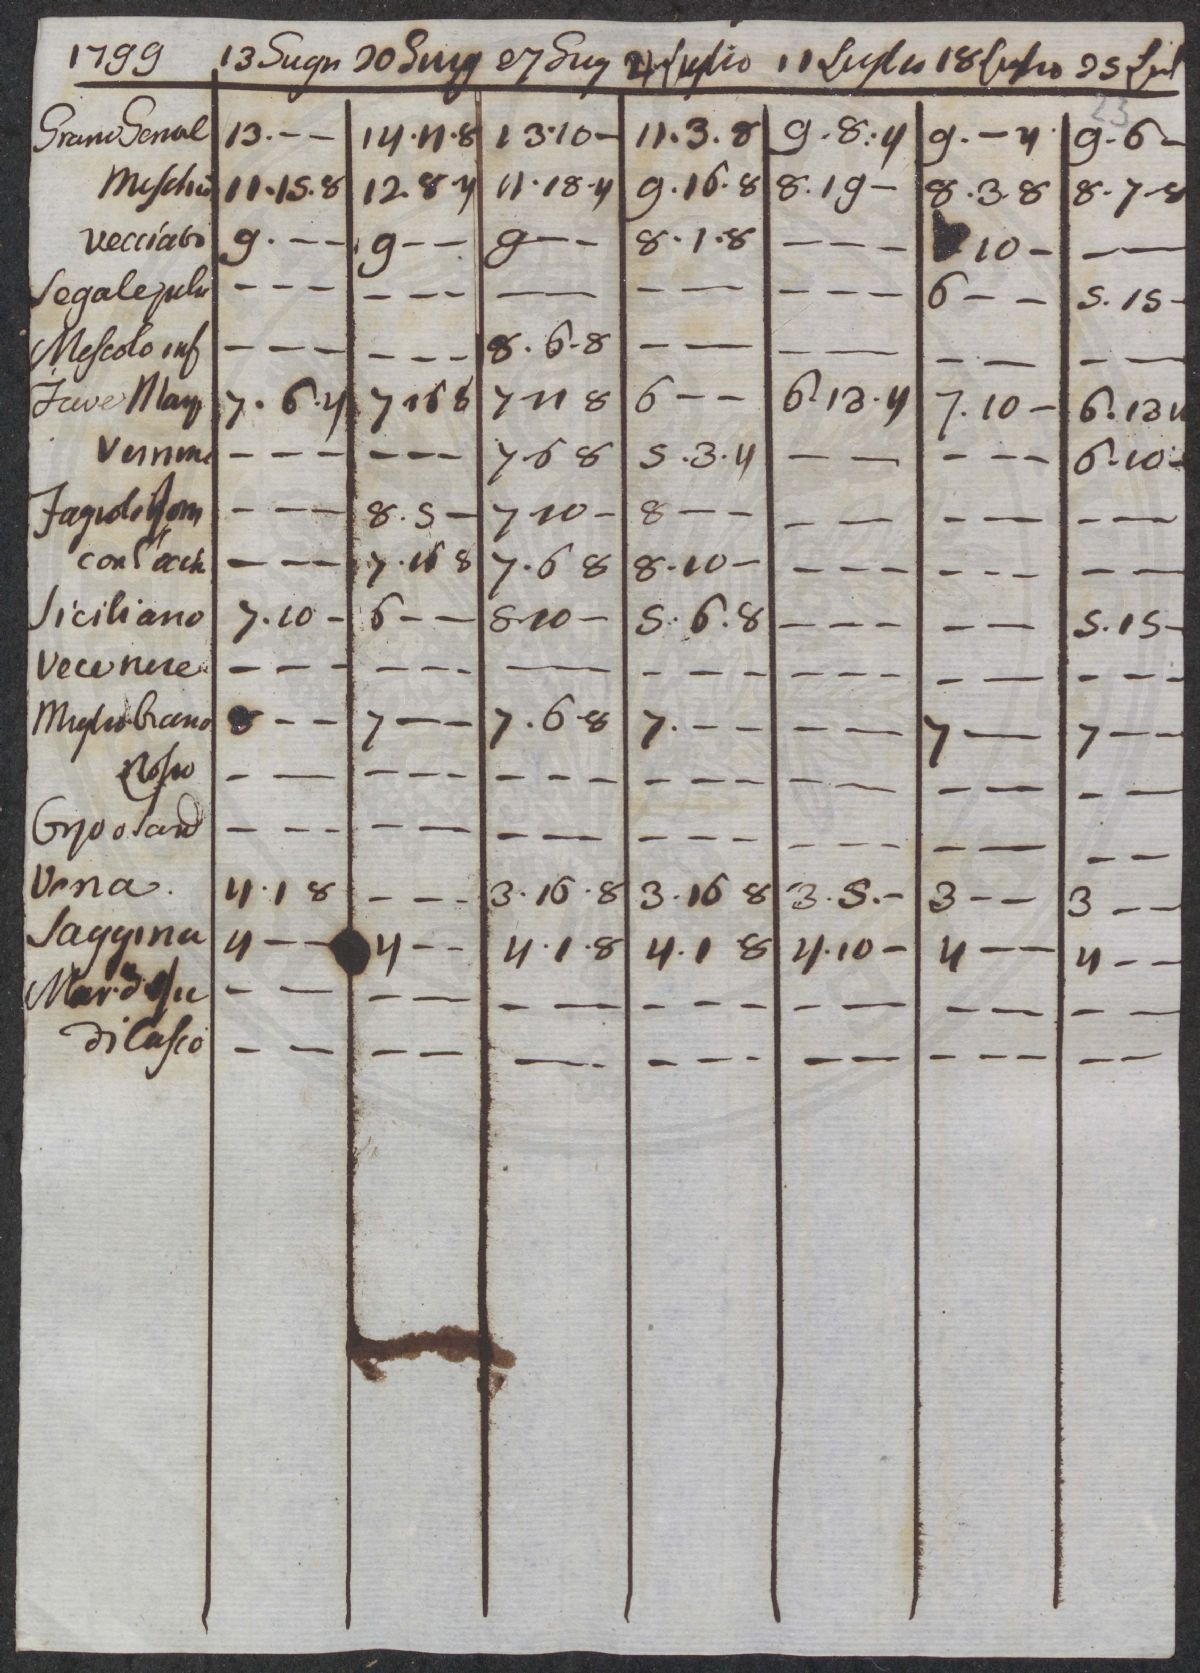 1799 13 Giugn 20 Giug 27 Giug 4 Luglio 11 Luglio 18 Luglio 25 Lul
23
Grano Gental 13. – – 14.11.8 13.10 – 11.3.8 9.8.4 9. – 4 9.6 –
Meschio 11.15.8 12.8.4 11.18.4 9.16.8 8.19 – 8.3.8 8.7.8
Vecciato 9. – – 9 – – 9 – – 8.1.8 – – – 10 – – –
Segale – – – – – – – – – – – – – 6 – – 5.15 –
Mescolo inf – – – – – – 8.6.8 – – – – – – – –
Fave Mag 7.6.4 7 16 8 7 11 8 6 – – 6.13.4 7.10 – 6.13 4
Vernine – – – – – – 7 6 8 5.3.4 – – – – – 6.10 –
Fagioli – – – 8.5 – 7 10 – 8 – – – – – – – – –
con l'occh – – – 7.16 8 7.6 8 8.10 – – – – – – – – –
Siciliano 7.10 – 6 – – 5 10 – 5.6.8 – – – – – 5.15 –
Vecce nere – – – – – – – – – – – – – – – – – – –
Miglio biano 8 – – 7 – – 7.6 8 7. – – – – – 7 – 7 – –
Rosso – – – – – – – – – – – – – – – – –
Orzo – – – – – – – – – – – – – – – – –
Vena. 4.1 8 – – – 3.16.8 3.16 8 3.5. – 3 – – 3 – –
Saggina 4 – – 4 – – 4.1.8 4.1 8 4.10 – 4 – – 4 – –
– – – – – – – – – – – – – – – – –
di Casio – – – – – – – – – – – – – – –